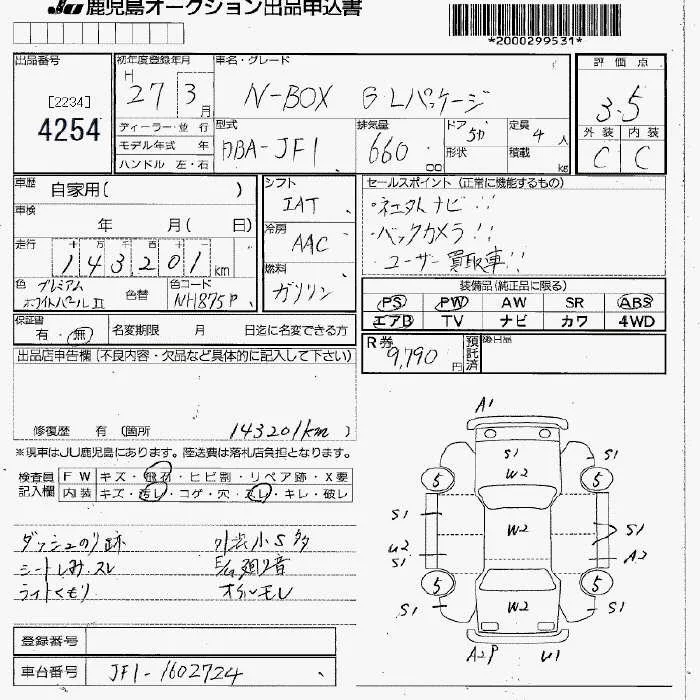 JU 鹿児島オークション出品申込書
*2000299531*
出品番号
[2234]
4254
初年度登録年月
H 27 3月
車名・グレード
N-BOX G・Lパッケージ
評価点
3.5
外装 内装
C C
ディーラー・並行
モデル年式 年
ハンドル 左・右
型式
DBA-JF1
排気量
660 cc
ドア 5カ
形状
定員 4人
積載 kg
車歴 自家用( )
車検 年 月( 日)
走行 十 万 千 百 十 一
143,201km
色 プレミアムホワイトパールII
色替
色コード NH875P
シフト
IAT
冷房
AAC
燃料
ガソリン
セールスポイント(正常に機能するもの)
・ネエクストナビ!!
・バックカメラ!!
・ユーザー買取車!!
装備品(純正品に限る)
PS PW AW SR ABS
エアB TV ナビ カワ 4WD
保証書 有・無
名変期限 月 日迄に名変できる方
R券 9,790円
預託済
後日品
出品店申告欄(不良内容・欠品など具体的に記入して下さい)
修復歴 有(箇所 143201km)
※現車はJU鹿児島にあります。陸送費は落札店負担となります。
検査員記入欄
FW キズ・飛石・ヒビ割・リペア跡・X要
内装 キズ・汚レ・コゲ・穴・スレ・キレ・破レ
ダッシュのり跡
シートしみ・スレ
ライトくもり
小S多
E/G廻り音
オイルモレ
登録番号
車台番号 JF1-1602724
A1
S1
W2
5 5
S1
W2
S1
U2
S1
A2
5 5
S1
W2
S1
A2P
U1